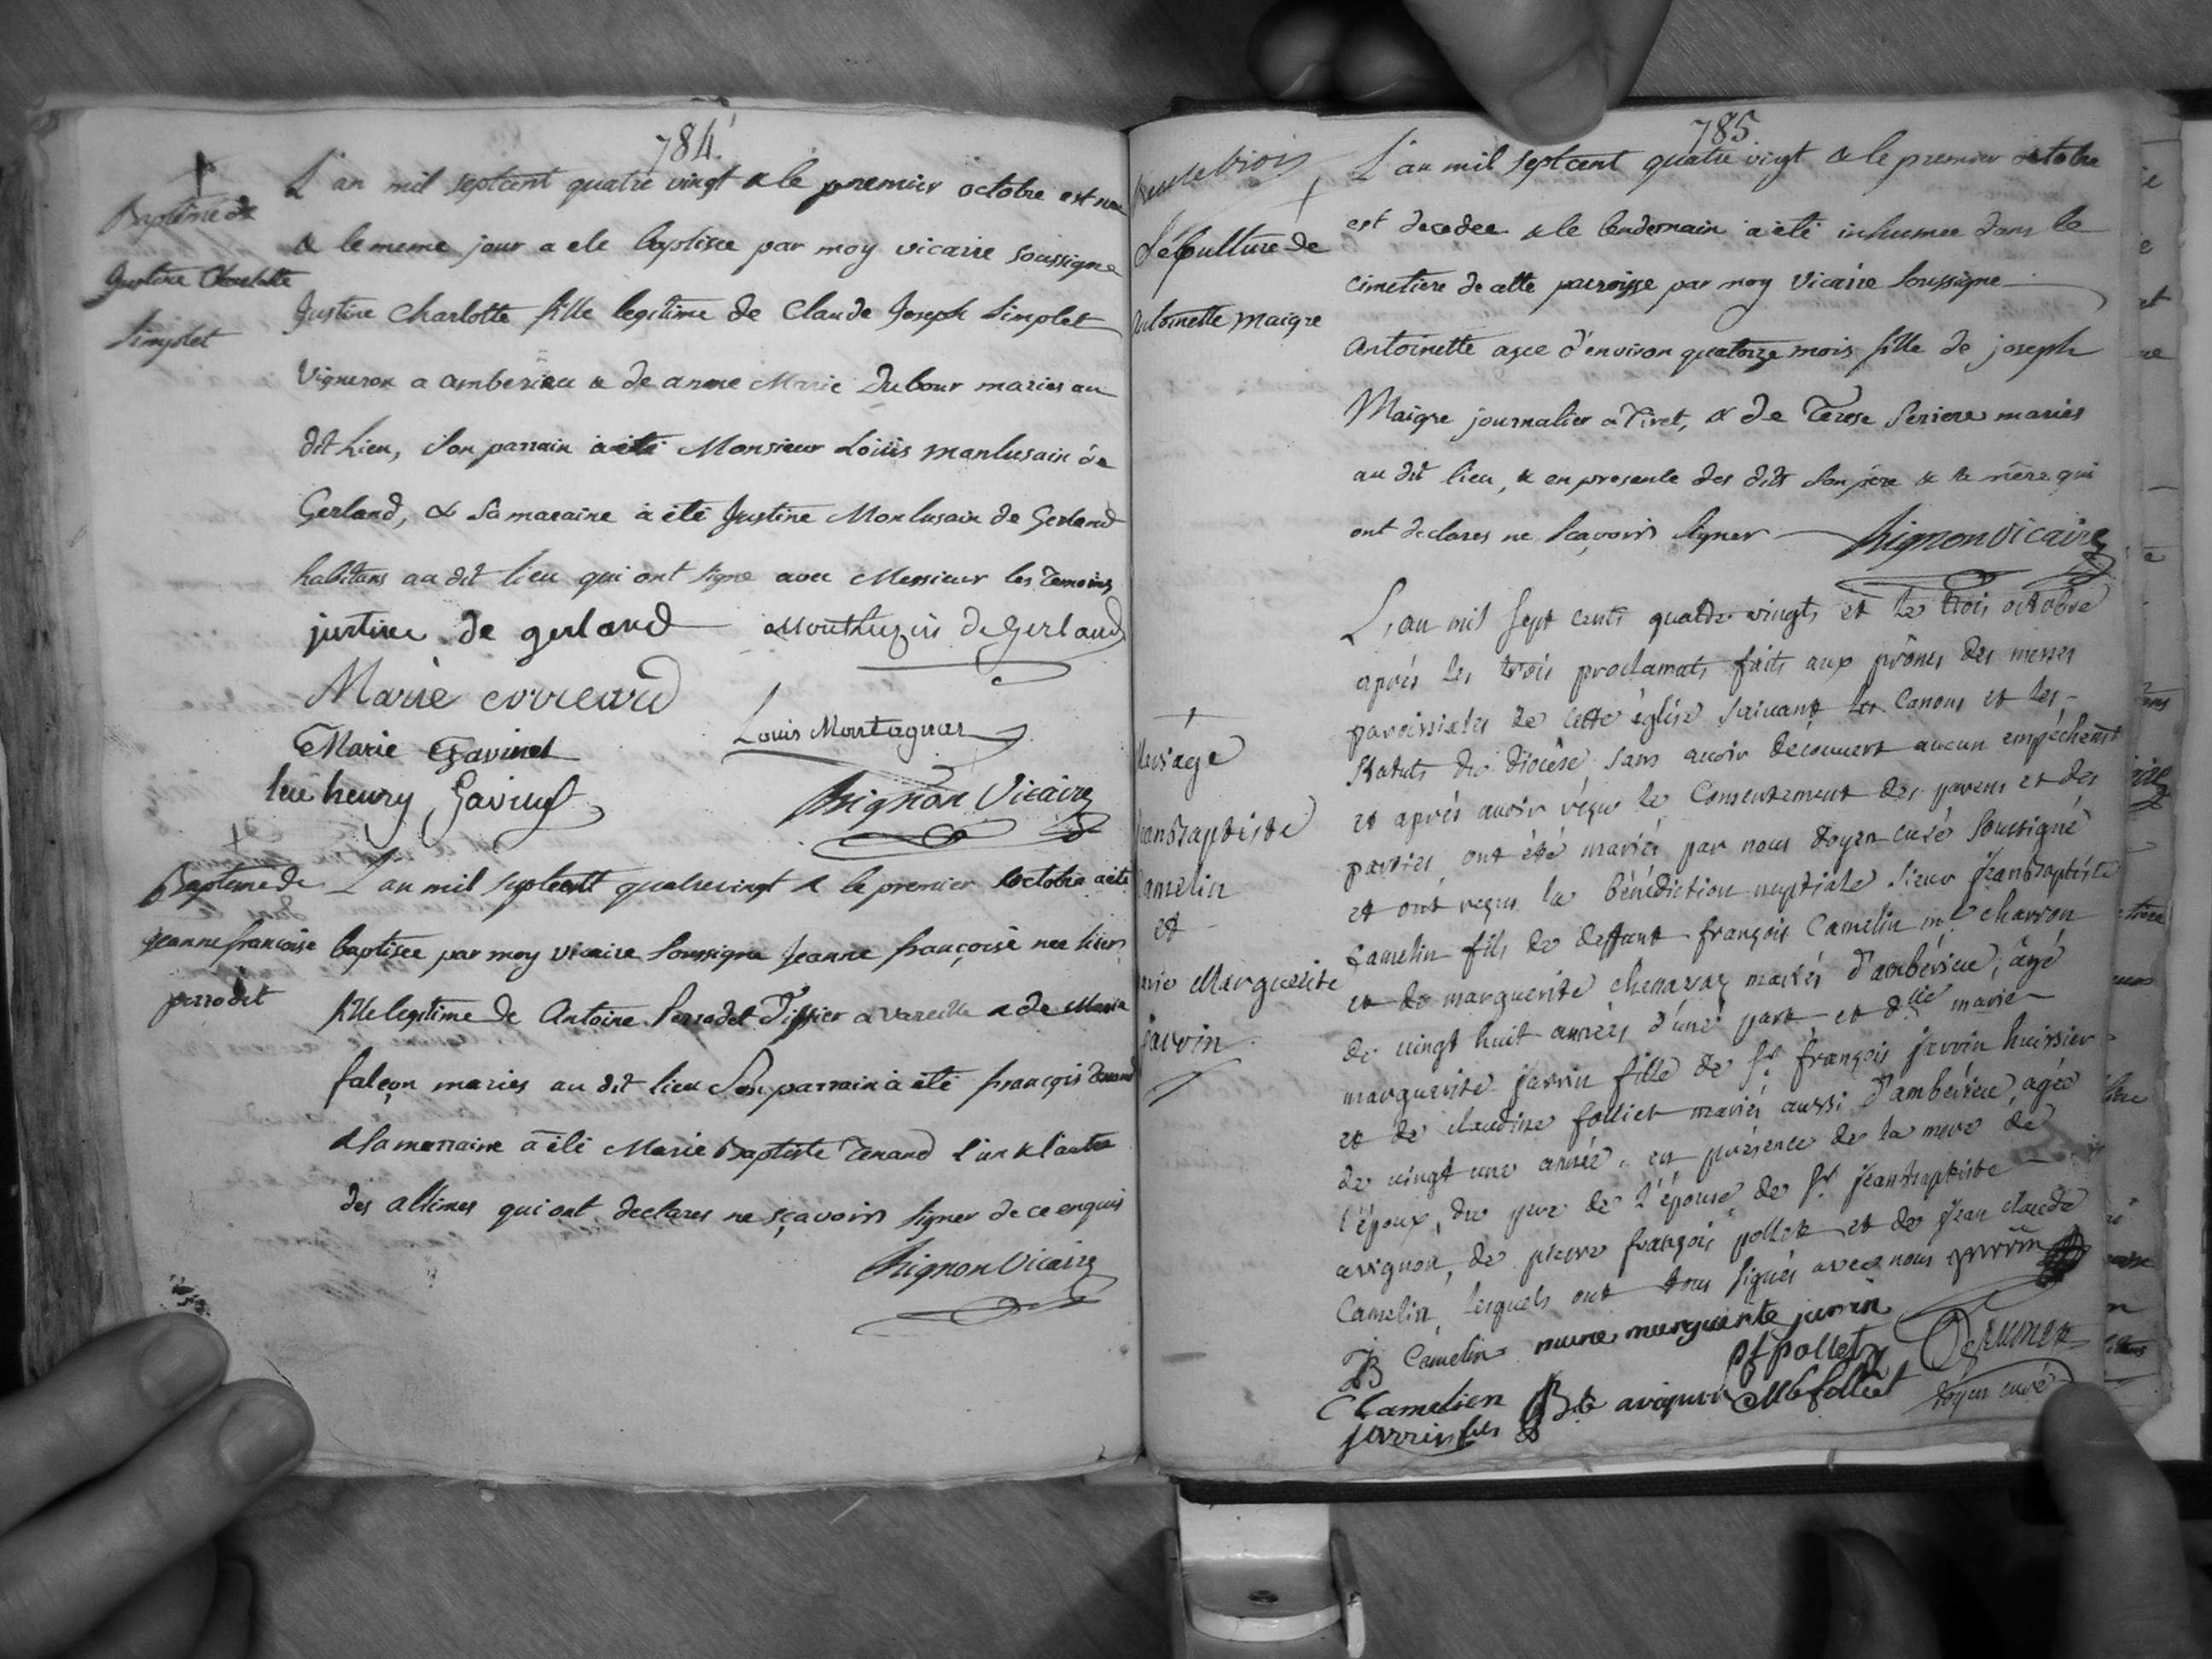 784.
Baptême de
Justine Charlotte
Simplet
L'an mil septcent quatre vingt & le premier octobre est nee
& le meme jour a ete baptisee par moy vicaire soussigne
Justine Charlotte fille legitime de Claude Joseph Simplet
Vigneron a amberieu & de anne Marie Dubour maries au
dit Lieu, Son parrain à été Monsieur Loüis manlusain de
Gerland, & Sa maraine à été Justine Monlusain de Gerland
habitans au dit lieu qui ont signe avec Messieur les temoins
justine de gerland Monthuzin de Gerland
Marie correard
Louis Montagnat
Marie Gavinet
henry Gavinet
Vicaire
Baptême de
Jeanne francoise
perrodet
L'an mil septcent quatrevingt & le premier octobre a été
baptisee par moy vicaire Soussigne Jeanne françoise nee hier
fille legitime de Antoine Perrodet Tissier a vareille & de Marie
falcon maries au dit lieu Son parrain à été françois tenand
& Sa marraine à été Marie Baptiste Tenand l'un & l'autre
des allimes qui ont declares ne sçavoirs signer de ce enquis
Vicaire
785.
Sépulture de
Antoinette Maigre
L'an mil septcent quatre vingt & le premier octobre
est decedee & le lendemain à été inhumee dans le
cimetiere de cette paroisse par moy vicaire Soussigne
Antoinette agee d'environ quatorze mois fille de joseph
Maigre journalier a Tiret, & de Terese Seriere maries
au dit lieu, & en presente des dits Son père & sa mère qui
ont declares ne Sçavoirs signer vicaire
Mariage
jeanbaptiste
Camelin
et
marie Marguerite
jarrin
L'an mil sept cents quatre vingts et le trois octobre
après les trois proclamats faits aux prônes des messes
paroissiales de cette église suivant les Canons et les
Statuts du diocèse sans avoir découvert aucun empéchemt
et après avoir réçu le Consentement des parens et des
parties, ont été mariés par nous doyen curé Soussigné
et ont reçus la bénédiction nuptiale sieur jeanbaptiste
Camelin fils de deffunt françois Camelin md charron
et de marguerite chenavaz mariés d'ambérieu, âgé
de vingt huit années d'une part et dlle marie
marguerite jarrin fille de Sr. françois jarrin huissier
et de claudine folliet mariés aussi d'ambérieu, agée
de vingt une année. en présence de la mere de
l'époux, du pere de l'épouse, de Sr. jeanbaptiste
avignon, de pierre françois pollet et de jean claude
Camelin, lesquels ont tous signés avec nous jarrin
JB Camelin marie marguerite jarrin
pf pollet
C Camelien JBte avignon folliet doyen curé
jarrin fils